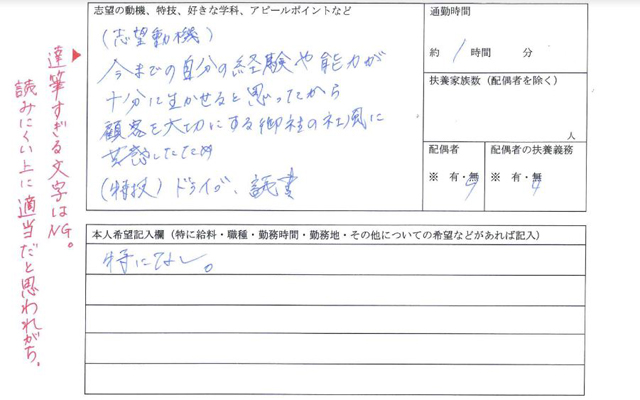 達筆すぎる文字はNG。
読みにくい上に適当だと思われがち。
志望の動機、特技、好きな学科、アピールポイントなど
(志望動機)
今までの自分の経験や能力が
十分に生かせると思ってたから
顧客を大切にする御社の社風に
共感したため
(特技)ドライブ、読書
通勤時間
約 1 時間 分
扶養家族数(配偶者を除く)
人
配偶者
※ 有・無
配偶者の扶養義務
※ 有・無
本人希望記入欄(特に給料・職種・勤務時間・勤務地・その他についての希望などがあれば記入)
特になし。